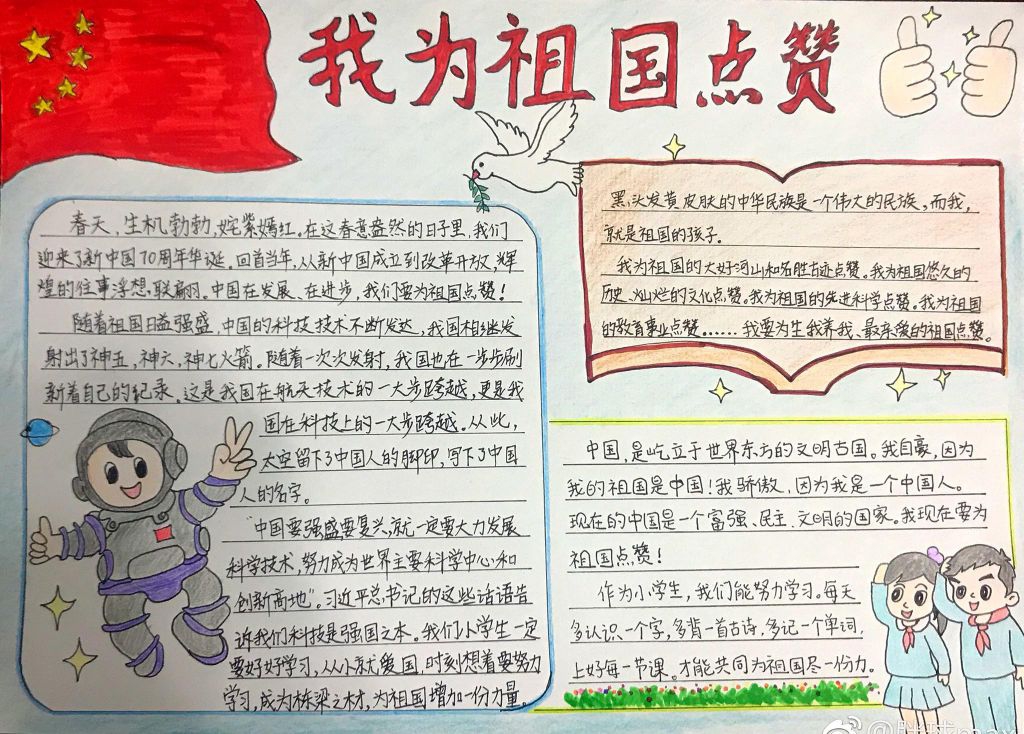 我为祖国点赞
春天，生机勃勃，姹紫嫣红。在这春意盎然的日子里，我们
迎来了新中国70周年华诞。回首当年，从新中国成立到改革开放，辉
煌的往事浮想联翩。中国在发展、在进步，我们要为祖国点赞！
随着祖国日益强盛，中国的科技技术不断发达，我国相继发
射出了神五，神六，神七火箭。随着一次次发射，我国也在一步步刷
新着自己的纪录。这是我国在航天技术的一大步跨越，更是我
国在科技上的一大步跨越。从此，
太空留下了中国人的脚印，写下了中国
人的名字。
“中国要强盛要复兴，就一定要大力发展
科学技术，努力成为世界主要科学中心和
创新高地”。习近平总书记的这些话语告
诉我们科技是强国之本。我们小学生一定
要好好学习，从小就爱国，时刻想着要努力
学习，成为栋梁之材，为祖国增加一份力量。
黑头发黄皮肤的中华民族是一个伟大的民族，而我，
就是祖国的孩子。
我为祖国的大好河山和名胜古迹点赞。我为祖国悠久的
历史、灿烂的文化点赞。我为祖国的先进科学点赞。我为祖国
的教育事业点赞……我要为生我养我、最亲爱的祖国点赞。
中国，是屹立于世界东方的文明古国。我自豪，因为
我的祖国是中国！我骄傲，因为我是一个中国人。
现在的中国是一个富强、民主、文明的国家。我现在要为
祖国点赞！
作为小学生，我们能努力学习。每天
多认识一个字，多背一首古诗，多记一个单词，
上好每一节课。才能共同为祖国尽一份力。